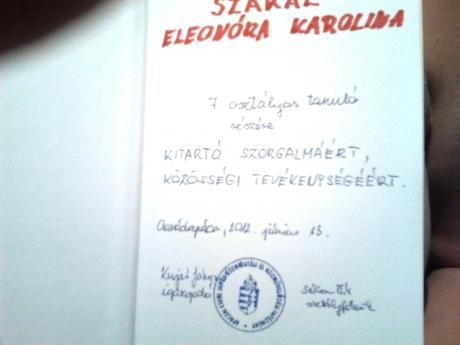 SZAKÁL
ELEONÓRA KAROLINA
7 osztályos tanuló
részére
KITARTÓ SZORGALMÁÉRT,
KÖZÖSSÉGI TEVÉKENYSÉGÉÉRT.
2012. június 15.
igazgató
osztályfőnök